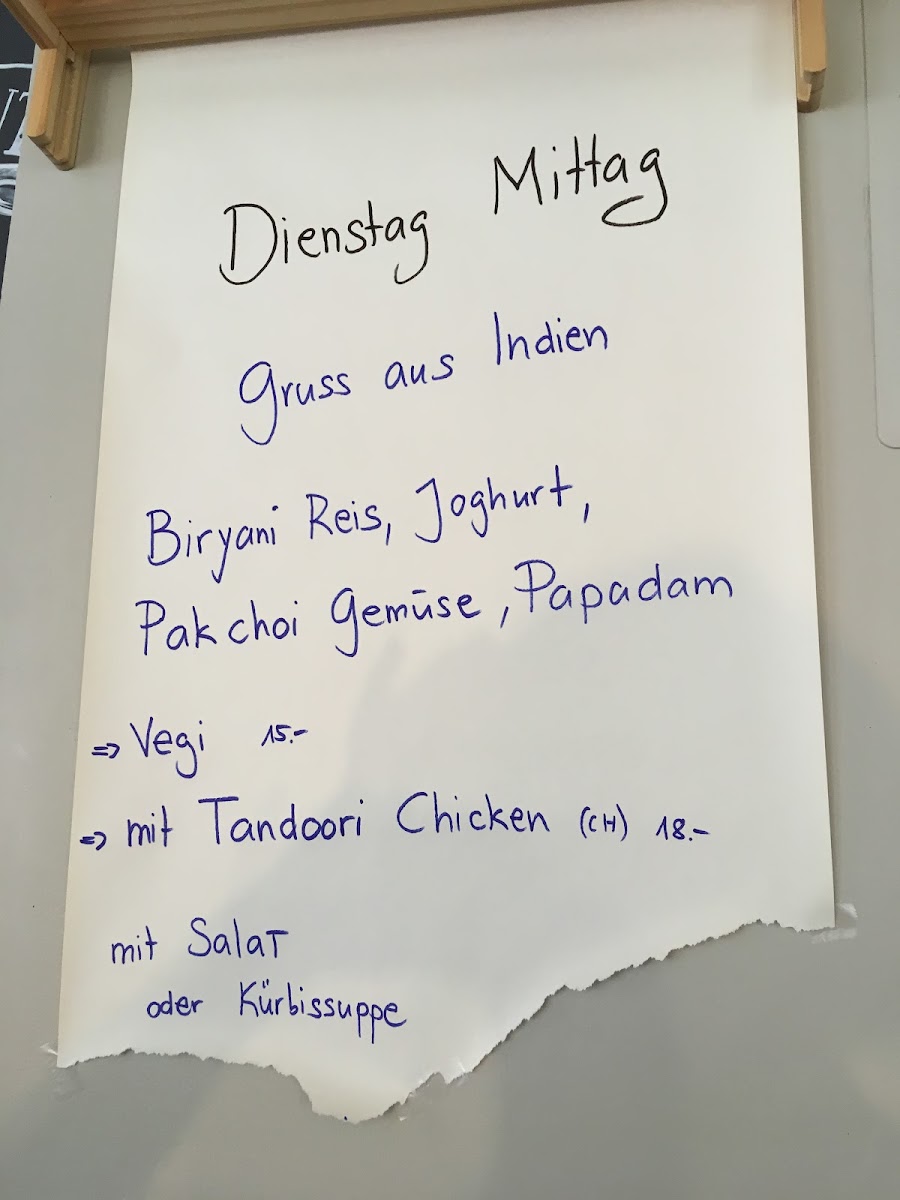 Dienstag Mittag
Gruss aus Indien
Biryani Reis, Joghurt,
Pakchoi Gemüse, Papadam
⇒ Vegi 15.-
⇒ mit Tandoori Chicken (CH) 18.-
mit Salat
oder Kürbissuppe